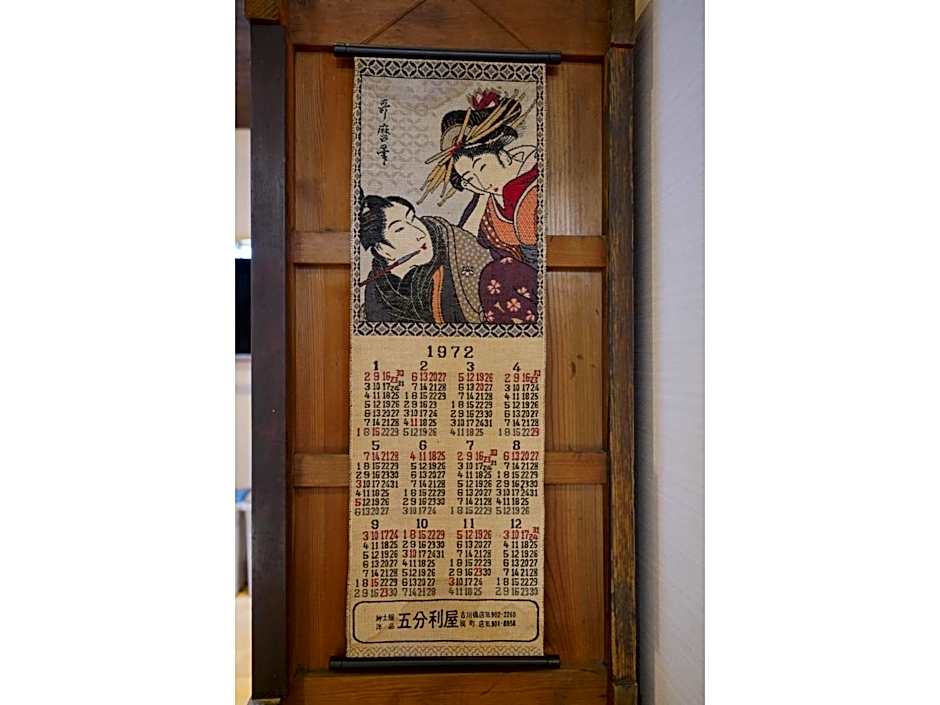 哥麿筆
1972
1 2 3 4
2 9 16 23 30 6 13 20 27 5 12 19 26 2 9 16 23 30
3 10 17 24 31 7 14 21 28 6 13 20 27 3 10 17 24
4 11 18 25 1 8 15 22 29 7 14 21 28 4 11 18 25
5 12 19 26 2 9 16 23 1 8 15 22 29 5 12 19 26
6 13 20 27 3 10 17 24 2 9 16 23 30 6 13 20 27
7 14 21 28 4 11 18 25 3 10 17 24 31 7 14 21 28
1 8 15 22 29 5 12 19 26 4 11 18 25 1 8 15 22 29
5 6 7 8
7 14 21 28 4 11 18 25 2 9 16 23 30 6 13 20 27
1 8 15 22 29 5 12 19 26 3 10 17 24 31 7 14 21 28
2 9 16 23 30 6 13 20 27 4 11 18 25 1 8 15 22 29
3 10 17 24 31 7 14 21 28 5 12 19 26 2 9 16 23 30
4 11 18 25 1 8 15 22 29 6 13 20 27 3 10 17 24 31
5 12 19 26 2 9 16 23 30 7 14 21 28 4 11 18 25
6 13 20 27 3 10 17 24 1 8 15 22 29 5 12 19 26
9 10 11 12
3 10 17 24 1 8 15 22 29 5 12 19 26 3 10 17 24 31
4 11 18 25 2 9 16 23 30 6 13 20 27 4 11 18 25
5 12 19 26 3 10 17 24 31 7 14 21 28 5 12 19 26
6 13 20 27 4 11 18 25 1 8 15 22 29 6 13 20 27
7 14 21 28 5 12 19 26 2 9 16 23 30 7 14 21 28
1 8 15 22 29 6 13 20 27 3 10 17 24 1 8 15 22 29
2 9 16 23 30 7 14 21 28 4 11 18 25 2 9 16 23 30
紳士服
洋品
五分利屋
古川橋店TEL902-2260
町店TEL901-8956